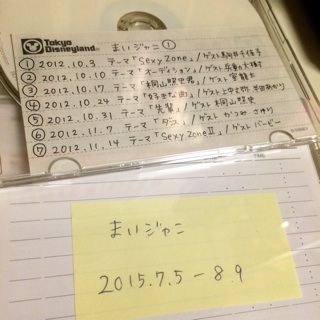 Tokyo
Disneyland®
まいジャニ ①
① 2012.10.3 テーマ「Sexy Zone」/ゲスト
② 2012.10.10 テーマ「オーディション」/ゲスト
③ 2012.10.17 テーマ「桐山照史君」/ゲスト 室龍太
④ 2012.10.24 テーマ「好きな曲」/ゲスト
⑤ 2012.10.31 テーマ「先輩」/ゲスト 桐山照史
⑥ 2012.11.7 テーマ「ダンス」/ゲスト かつみ さゆり
⑦ 2012.11.14 テーマ「Sexy Zone Ⅱ」/ゲスト バービー
まいジャニ
2015.7.5-8.9